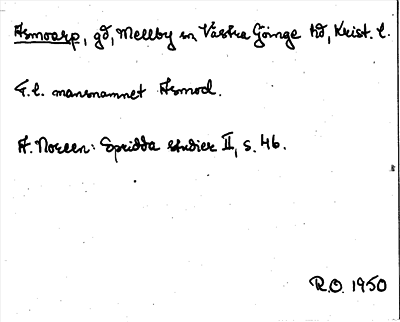 Asmoarp, gd, Mellby sn, Västra Göinge hd, Krist. l.
F.l. mansnamnet Asmod.
A. Noreen: Spridda studier II, s. 46.
R.O. 1950